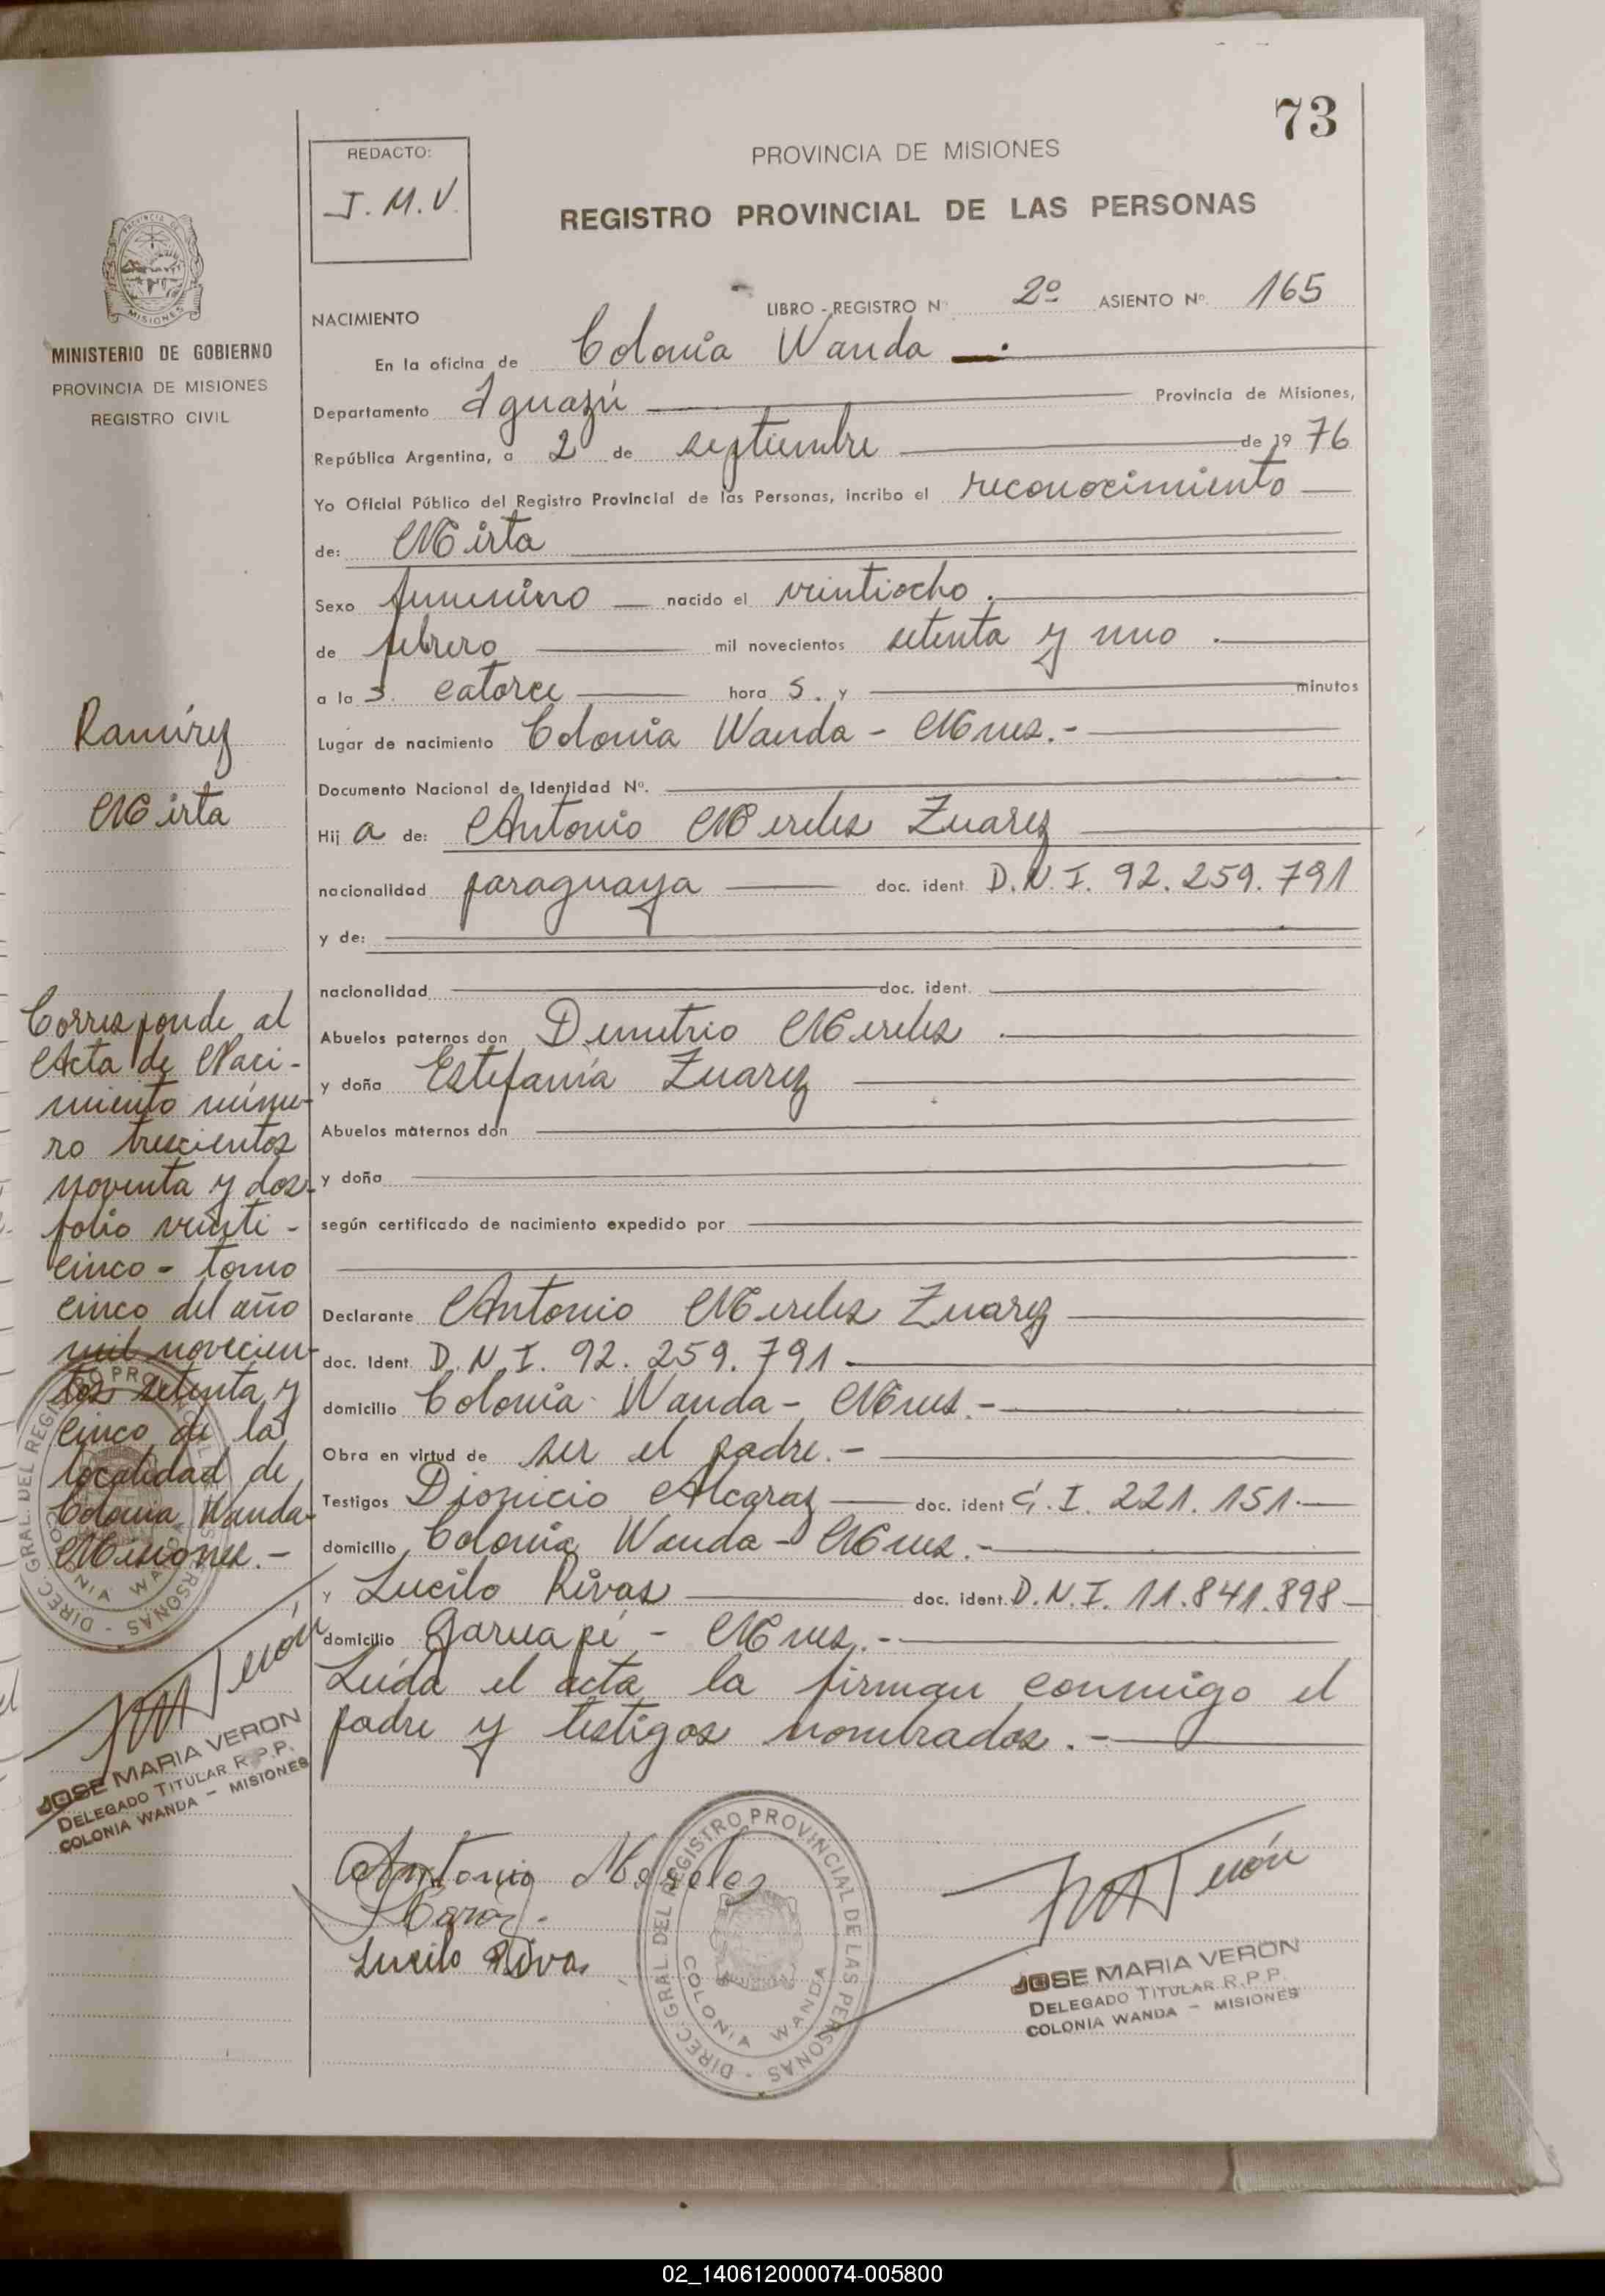 73
REDACTO:
J. M. V.
PROVINCIA DE MISIONES
REGISTRO PROVINCIAL DE LAS PERSONAS
MISIONES
MINISTERIO DE GOBIERNO
PROVINCIA DE MISIONES
REGISTRO CIVIL
NACIMIENTO LIBRO - REGISTRO Nº 2º ASIENTO Nº. 165
En la oficina de Colonia Wanda
Departamento Iguazú Provincia de Misiones,
República Argentina, a 2 de septiembre de 19 76
Yo Oficial Público del Registro Provincial de las Personas, incribo el reconocimiento
de: Mirta
Sexo femenino nacido el veintiocho.
de febrero mil novecientos setenta y uno.
a la s. catorce hora s. y minutos
Lugar de nacimiento Colonia Wanda - Mnes.-
Documento Nacional de Identidad Nº.
Hij a de: Antonio Mereles Zuarez
nacionalidad paraguaya doc. ident. D.N.I. 92.259.791
y de:
nacionalidad doc. ident.
Abuelos paternos don Demetrio Mereles
y doña Estefanía Zuarez
Abuelos maternos don
y doña
según certificado de nacimiento expedido por
Declarante Antonio Mereles Zuarez
doc. Ident. D.N.I. 92.259.791.
domicilio Colonia Wanda - Mnes.-
Obra en virtud de ser el padre.-
Testigos Dionicio Alcaraz doc. ident C.I. 221.151.
domicilio Colonia Wanda - Mnes.-
y Lucilo Rivas doc. ident. D.N.I. 11.841.898
domicilio Garuapé - Mnes.-
Leída el acta la firman conmigo el
padre y testigos nombrados.-
Ramírez
Mirta
Corresponde al
Acta de Naci-
miento núme-
ro trescientos
noventa y dos
folio veinti-
cinco - tomo
cinco del año
mil novecien-
tos setenta y
cinco de la
localidad de
Colonia Wanda-
Misiones.-
DIREC. GRAL. DEL REGISTRO PROVINCIAL DE LAS PERSONAS
COLONIA WANDA
JOSE MARIA VERON
DELEGADO TITULAR R.P.P.
COLONIA WANDA - MISIONES
Antonio Mereles
Lucilo Rivas
DIREC. GRAL. DEL REGISTRO PROVINCIAL DE LAS PERSONAS
COLONIA WANDA
JOSE MARIA VERON
DELEGADO TITULAR R.P.P.
COLONIA WANDA - MISIONES
02_140612000074-005800